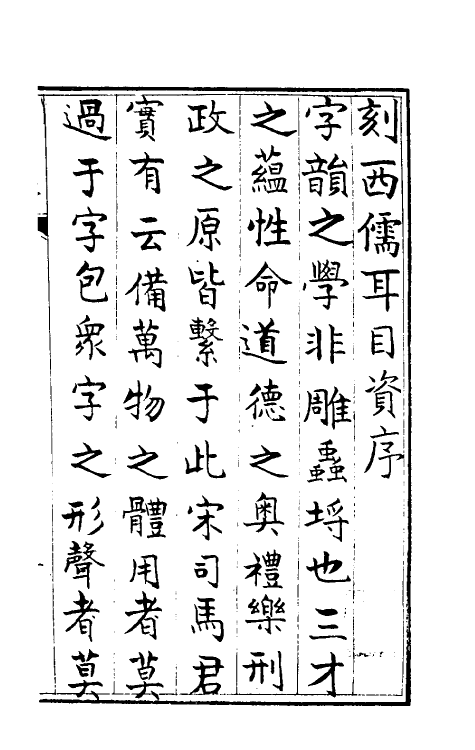 刻西儒耳目資序
字韻之學非雕蟲埒也三才
之蘊性命道德之奧禮樂刑
政之原皆繫于此宋司馬君
實有云備萬物之體用者莫
過于字包眾字之形聲者莫